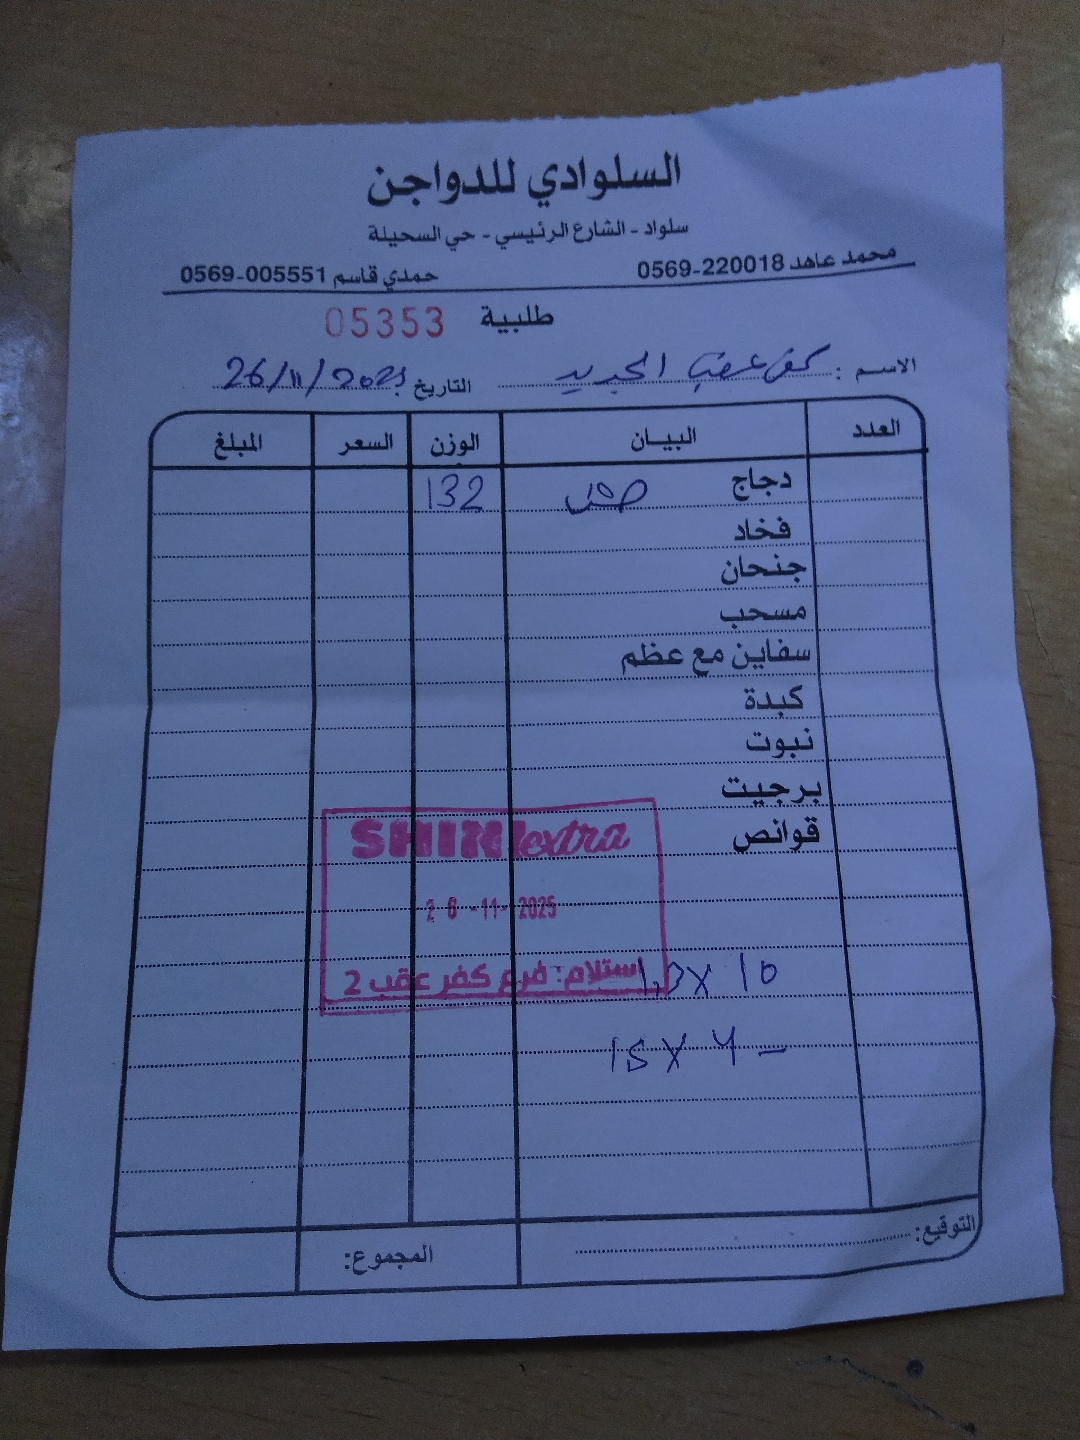 السلوادي للدواجن
سلواد - الشارع الرئيسي - حي السحيلة
محمد عاهد 0569-220018 حمدي قاسم 0569-005551
طلبية 05353
الاسم : كفر عقب الجديد التاريخ 26/11/2025
العدد البيـان الوزن السعر المبلغ
دجاج 132
فخاد
جنحان
مسحب
سفاين مع عظم
كبدة
نبوت
برجيت
قوانص
SHINI extra
26-11-2025
استلام: فرع كفر عقب 2
التوقيع:
المجموع: